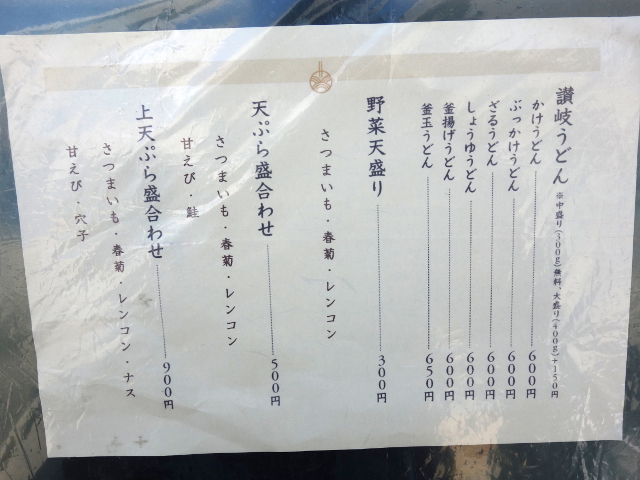 讃岐うどん ※中盛り(300g)無料、大盛り(400g)+150円
かけうどん 600円
ぶっかけうどん 600円
ざるうどん 600円
しょうゆうどん 600円
釜揚げうどん 600円
釜玉うどん 650円
野菜天盛り 300円
さつまいも・春菊・レンコン
天ぷら盛合わせ 500円
さつまいも・春菊・レンコン
甘えび・鮭
上天ぷら盛合わせ 900円
さつまいも・春菊・レンコン・ナス
甘えび・穴子